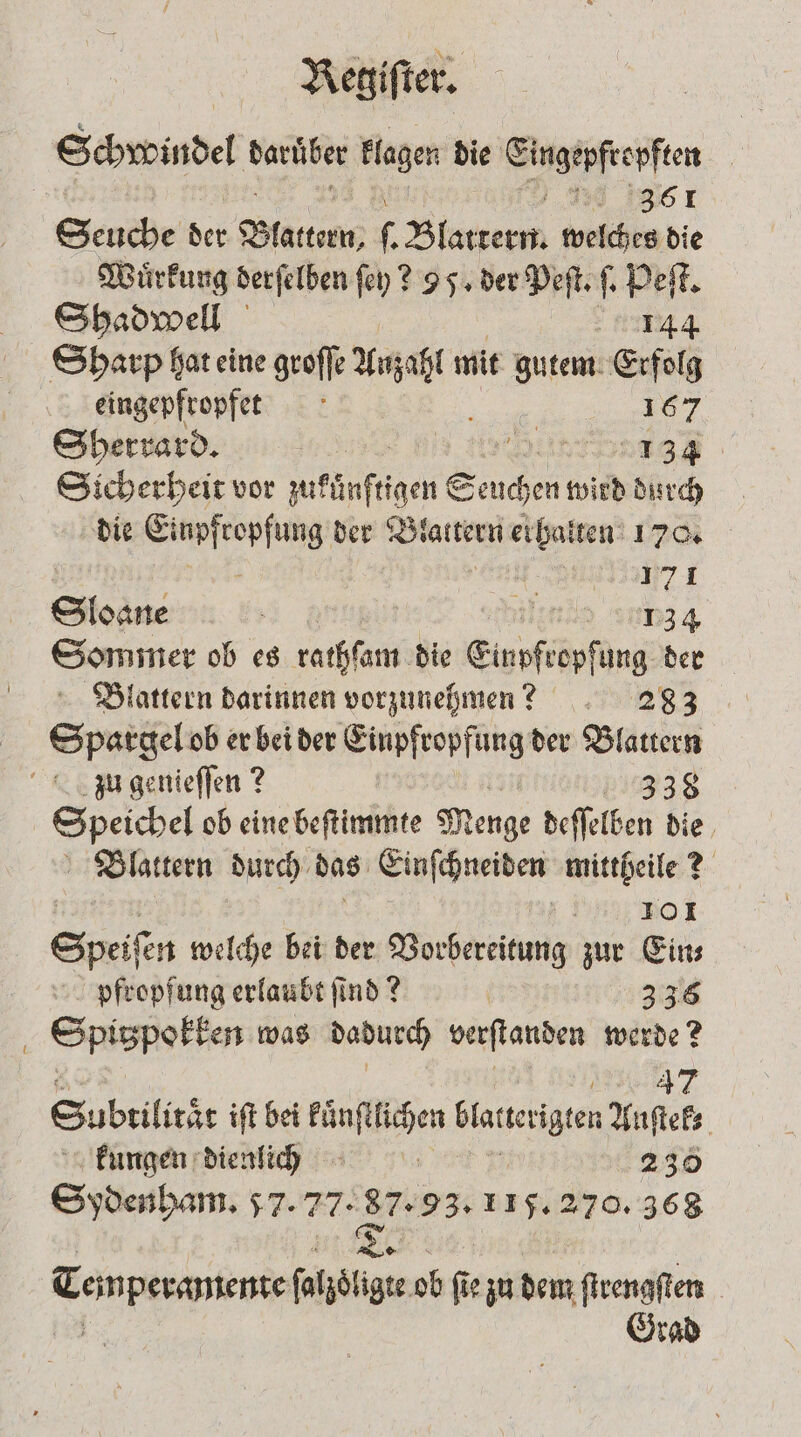 Regiſter.
Schwindel daruͤber klagen die Eingepfropften
361
Seuche der Blattern, ſ. Blattern. welches die
Wuͤrkung derſelben ſey? 95. der Peſt. ſ. Peſt.
Shadwell 144
Sharp hat eine groſſe Anzahl mit gutem Erfolg
eingepfropfet 167
Sherrard. 134
Sicherheit vor zukuͤnftigen Seuchen wird durch
die Einpfropfung der Blattern erhalten 170.
171
Sloane 134
Sommer ob es rathſam die Einpfropfung der
Blattern darinnen vorzunehmen? 283
Spargel ob er bei der Einpfropfung der Blattern
zu genieſſen? 338
Speichel ob eine beſtimmte Menge deſſelben die
Blattern durch das Einſchneiden mittheile?
101
Speiſen welche bei der Vorbereitung zur Ein⸗
pfropfung erlaubt ſind? 336
Spitzpokken was dadurch verſtanden werde?
47
Subtilitaͤt iſt bei kuͤnſtlichen blatterigten Anſtek⸗
kungen dienlich 230
Sydenham. 57. 77. 87. 93. 115. 270. 368
T.
Temperamente ſalzoͤligte ob ſie zu dem ſtrengſten
Grad